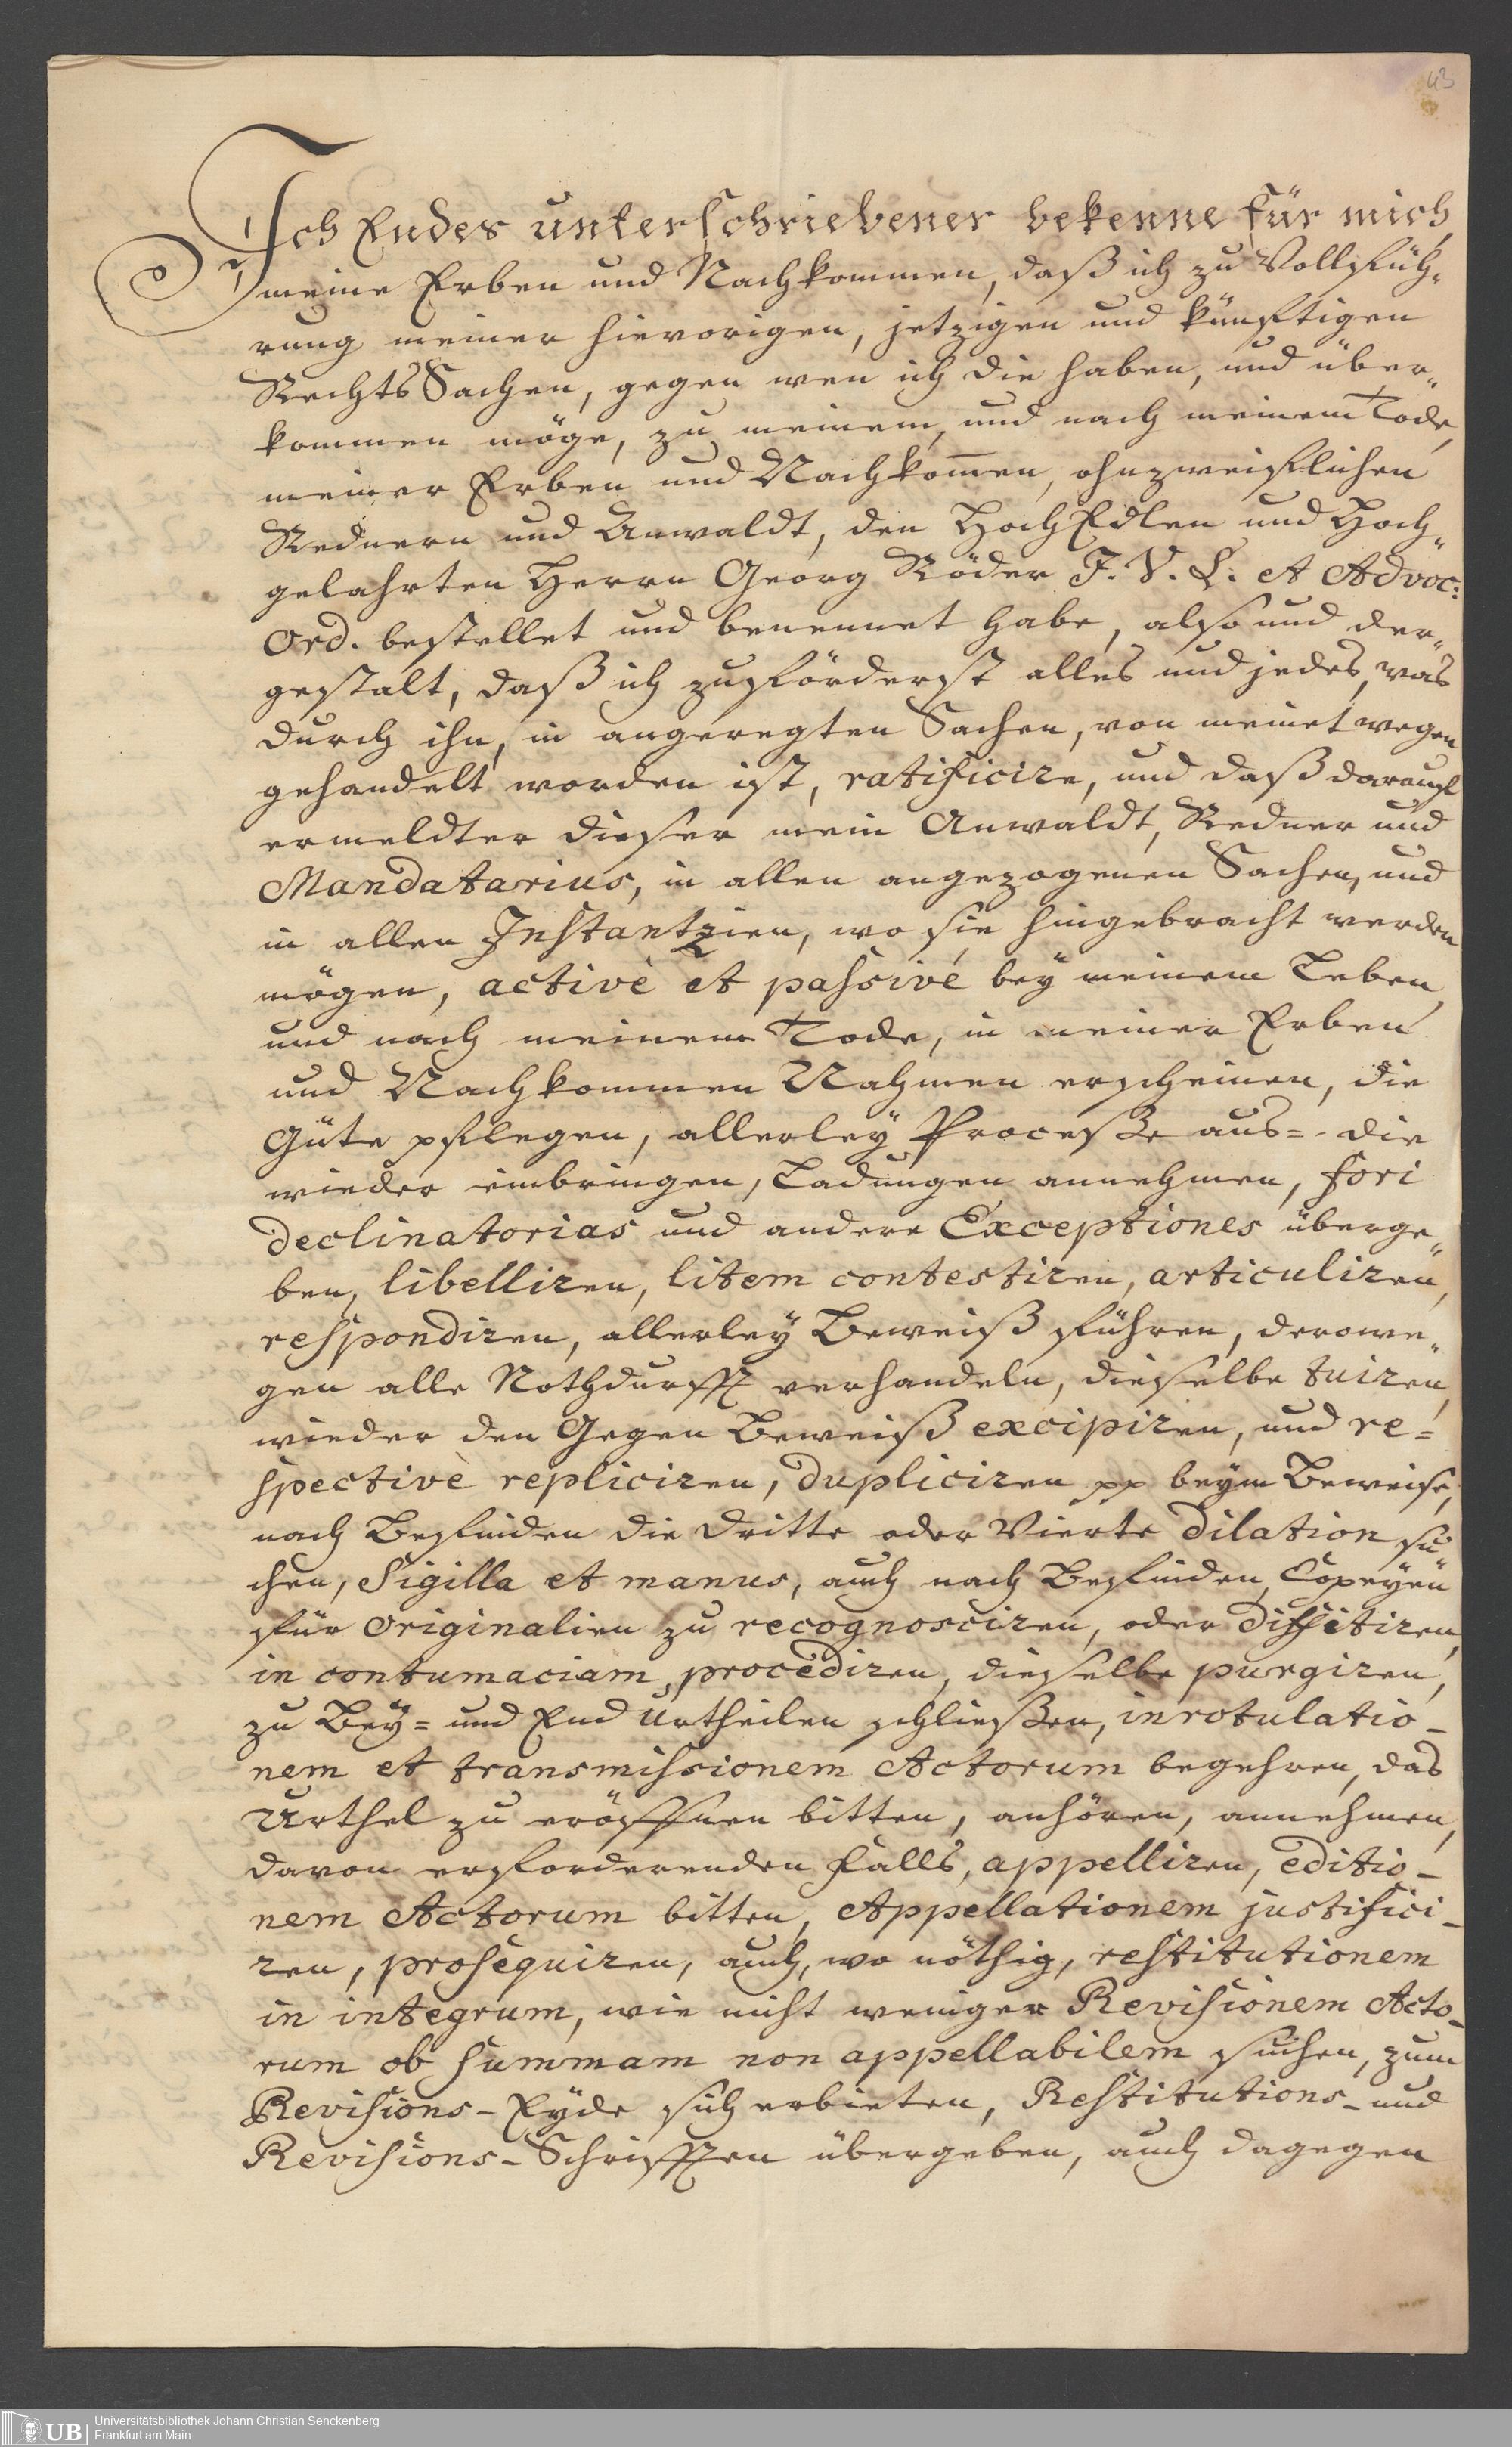 43
Ich Endes unterschriebener bekenne für mich,
meine Erben und Nachkommen, daß ich zu Vollfüh„
rung meiner hievorigen, jetzigen und künftigen
Rechts Sachen, gegen wen ich die haben, und über„
kommen möge, zu meinem, und nach meinem Tode,
meiner Erben und Nachkom̅en, ohnzweiflichen
Rednern und Anwaldt, den HochEdlen und Hoch„
gelahrten Herrn Georg Röder J. V. L. et Advoc:
Ord. bestellet und benennet habe, also und der„
gestalt, daß ich zuförderst alles und jedes, was
durch ihn, in angeregten Sachen, von meinetwegen
gehandelt worden ist, ratificire, und daß darauf
ermeldter dieser mein Anwaldt, Redner und
Mandatarius, in allen angezogenen Sachen, und
in allen Instantzien, wo sie hingebracht werden
mögen, activè et passivè bey meinem Leben,
und nach meinem Tode, in meiner Erben
und Nachkommen Nahmen erscheinen, die
Güte pflegen, allerley Processe aus= die
wieder einbringen, Ladungen annehmen, fori
declinatorias und andere Exceptiones überge„
ben, libelliren, litem contestiren, articuliren,
respondiren, allerley Beweiß führen, derowe„
gen alle Nothdurfft verhandeln, dieselbe tuiren,
wieder den Gegen Beweiß excipiren, und re=
spectivè repliciren, dupliciren pp beym Beweise,
nach Befinden die dritte oder Vierte dilation su„
chen, Sigilla et manus, auch nach Befinden, Copeyen
für Originalien zu recognosciren, oder diffitiren,
in contumaciam, procediren, dieselbe purgiren,
zu Bey= und End Urtheilen schließen, inrotulatio-
nem et transmissionem Actorum begehren, das
Urthel zu eröffnen bitten, anhören, annehmen,
davon erforderenden Falls, appelliren, editio-
nem Actorum bitten, Appellationem justifici-
ren, prosequiren, auch, wo nöthig, restitutionem
in integrum, wie nicht weniger Revisionem Acto-
rum ob summam non appellabilem suchen, zum
Revisions-Eyde sich erbieten, Restitutions- und
Revisions-Schrifften übergeben, auch dagegen
UB Universitätsbibliothek Johann Christian Senckenberg
Frankfurt am Main